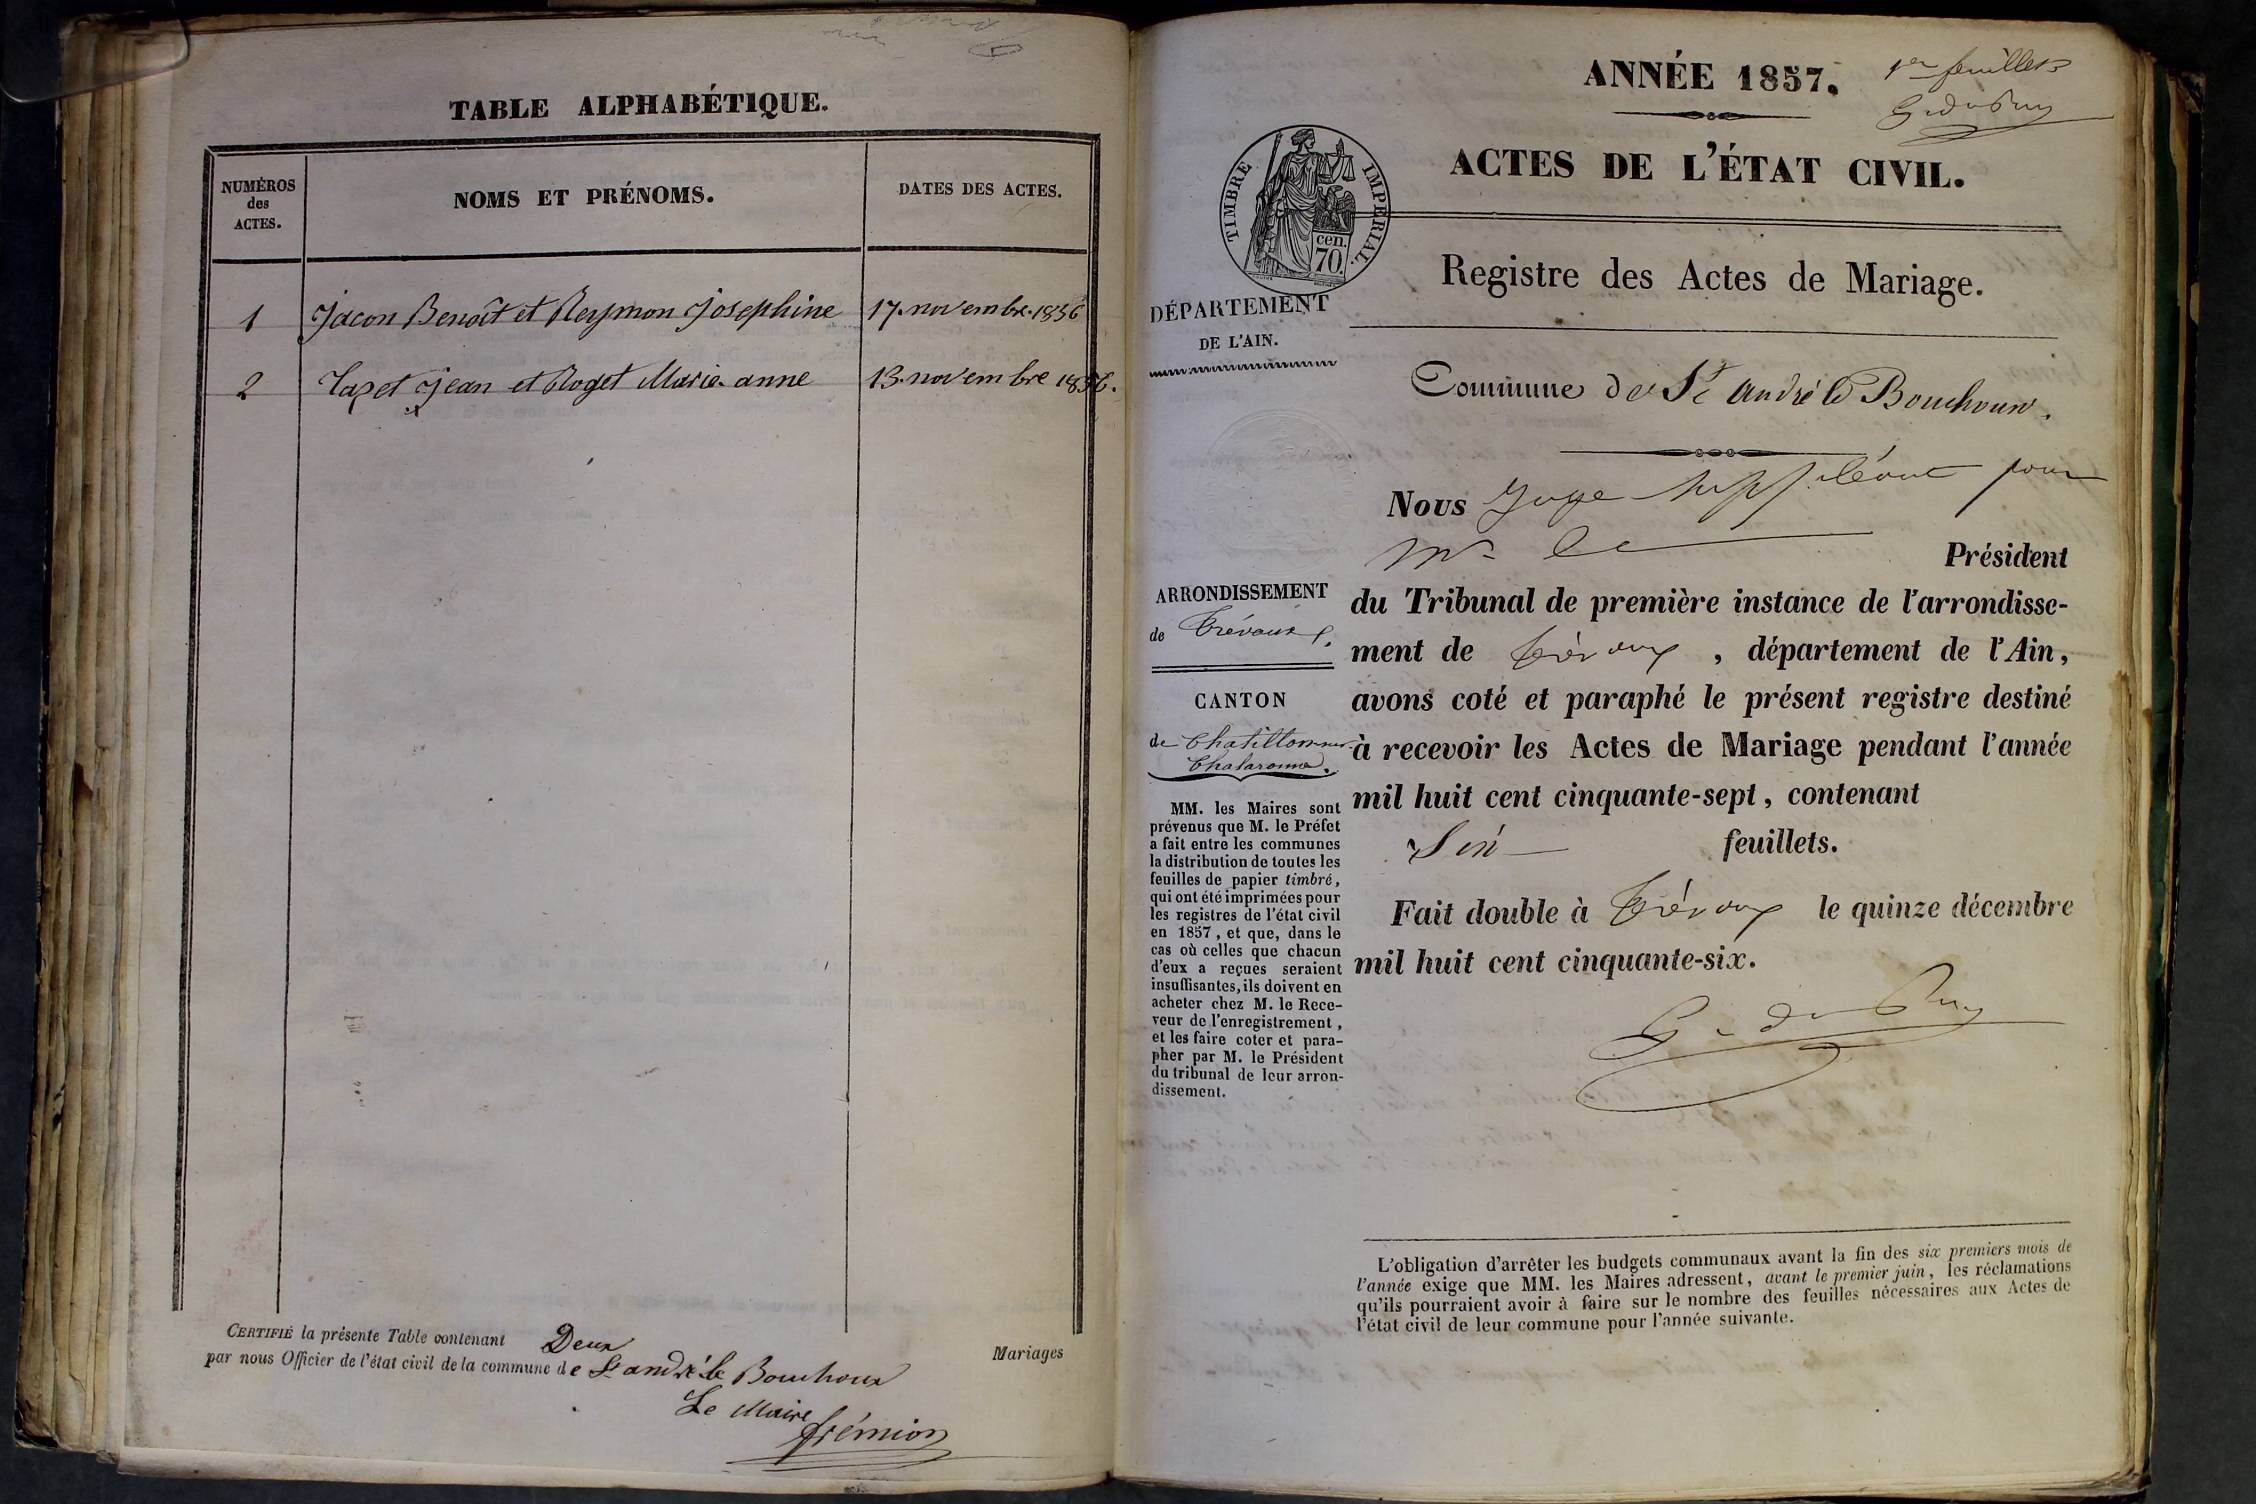 TABLE ALPHABÉTIQUE.
NUMÉROS
des
ACTES.
NOMS ET PRÉNOMS.
DATES DES ACTES.
1 Jacon Benoît et Reymon Josephine 17. novembre. 1856
2 Tapet Jean et Roget Marie-anne 13. novembre 1856.
CERTIFIÉ la présente Table contenant Deux Mariages
par nous Officier de l'état civil de la commune de St andré le Bouchoux
Le Maire
frémion
ANNÉE 1857.
1er feuillets
ACTES DE L'ÉTAT CIVIL.
TIMBRE IMPÉRIAL.
cen.
70.
Registre des Actes de Mariage.
DÉPARTEMENT
DE L'AIN.
Commune de St André le Bouchoux.
Nous Juge suppléant pour
Mr le Président
du Tribunal de première instance de l'arrondisse-
ment de Trévoux, département de l'Ain,
avons coté et paraphé le présent registre destiné
à recevoir les Actes de Mariage pendant l'année
mil huit cent cinquante-sept, contenant
Six feuillets.
Fait double à Trévoux le quinze décembre
mil huit cent cinquante-six.
ARRONDISSEMENT
de Trévoux.
CANTON
de Chatillon sur
Chalaronne.
MM. les Maires sont
prévenus que M. le Préfet
a fait entre les communes
la distribution de toutes les
feuilles de papier timbré,
qui ont été imprimées pour
les registres de l'état civil
en 1857, et que, dans le
cas où celles que chacun
d'eux a reçues seraient
insuffisantes, ils doivent en
acheter chez M. le Rece-
veur de l'enregistrement,
et les faire coter et para-
pher par M. le Président
du tribunal de leur arron-
dissement.
L'obligation d'arrêter les budgets communaux avant la fin des six premiers mois de
l'année exige que MM. les Maires adressent, avant le premier juin, les réclamations
qu'ils pourraient avoir à faire sur le nombre des feuilles nécessaires aux Actes de
l'état civil de leur commune pour l'année suivante.